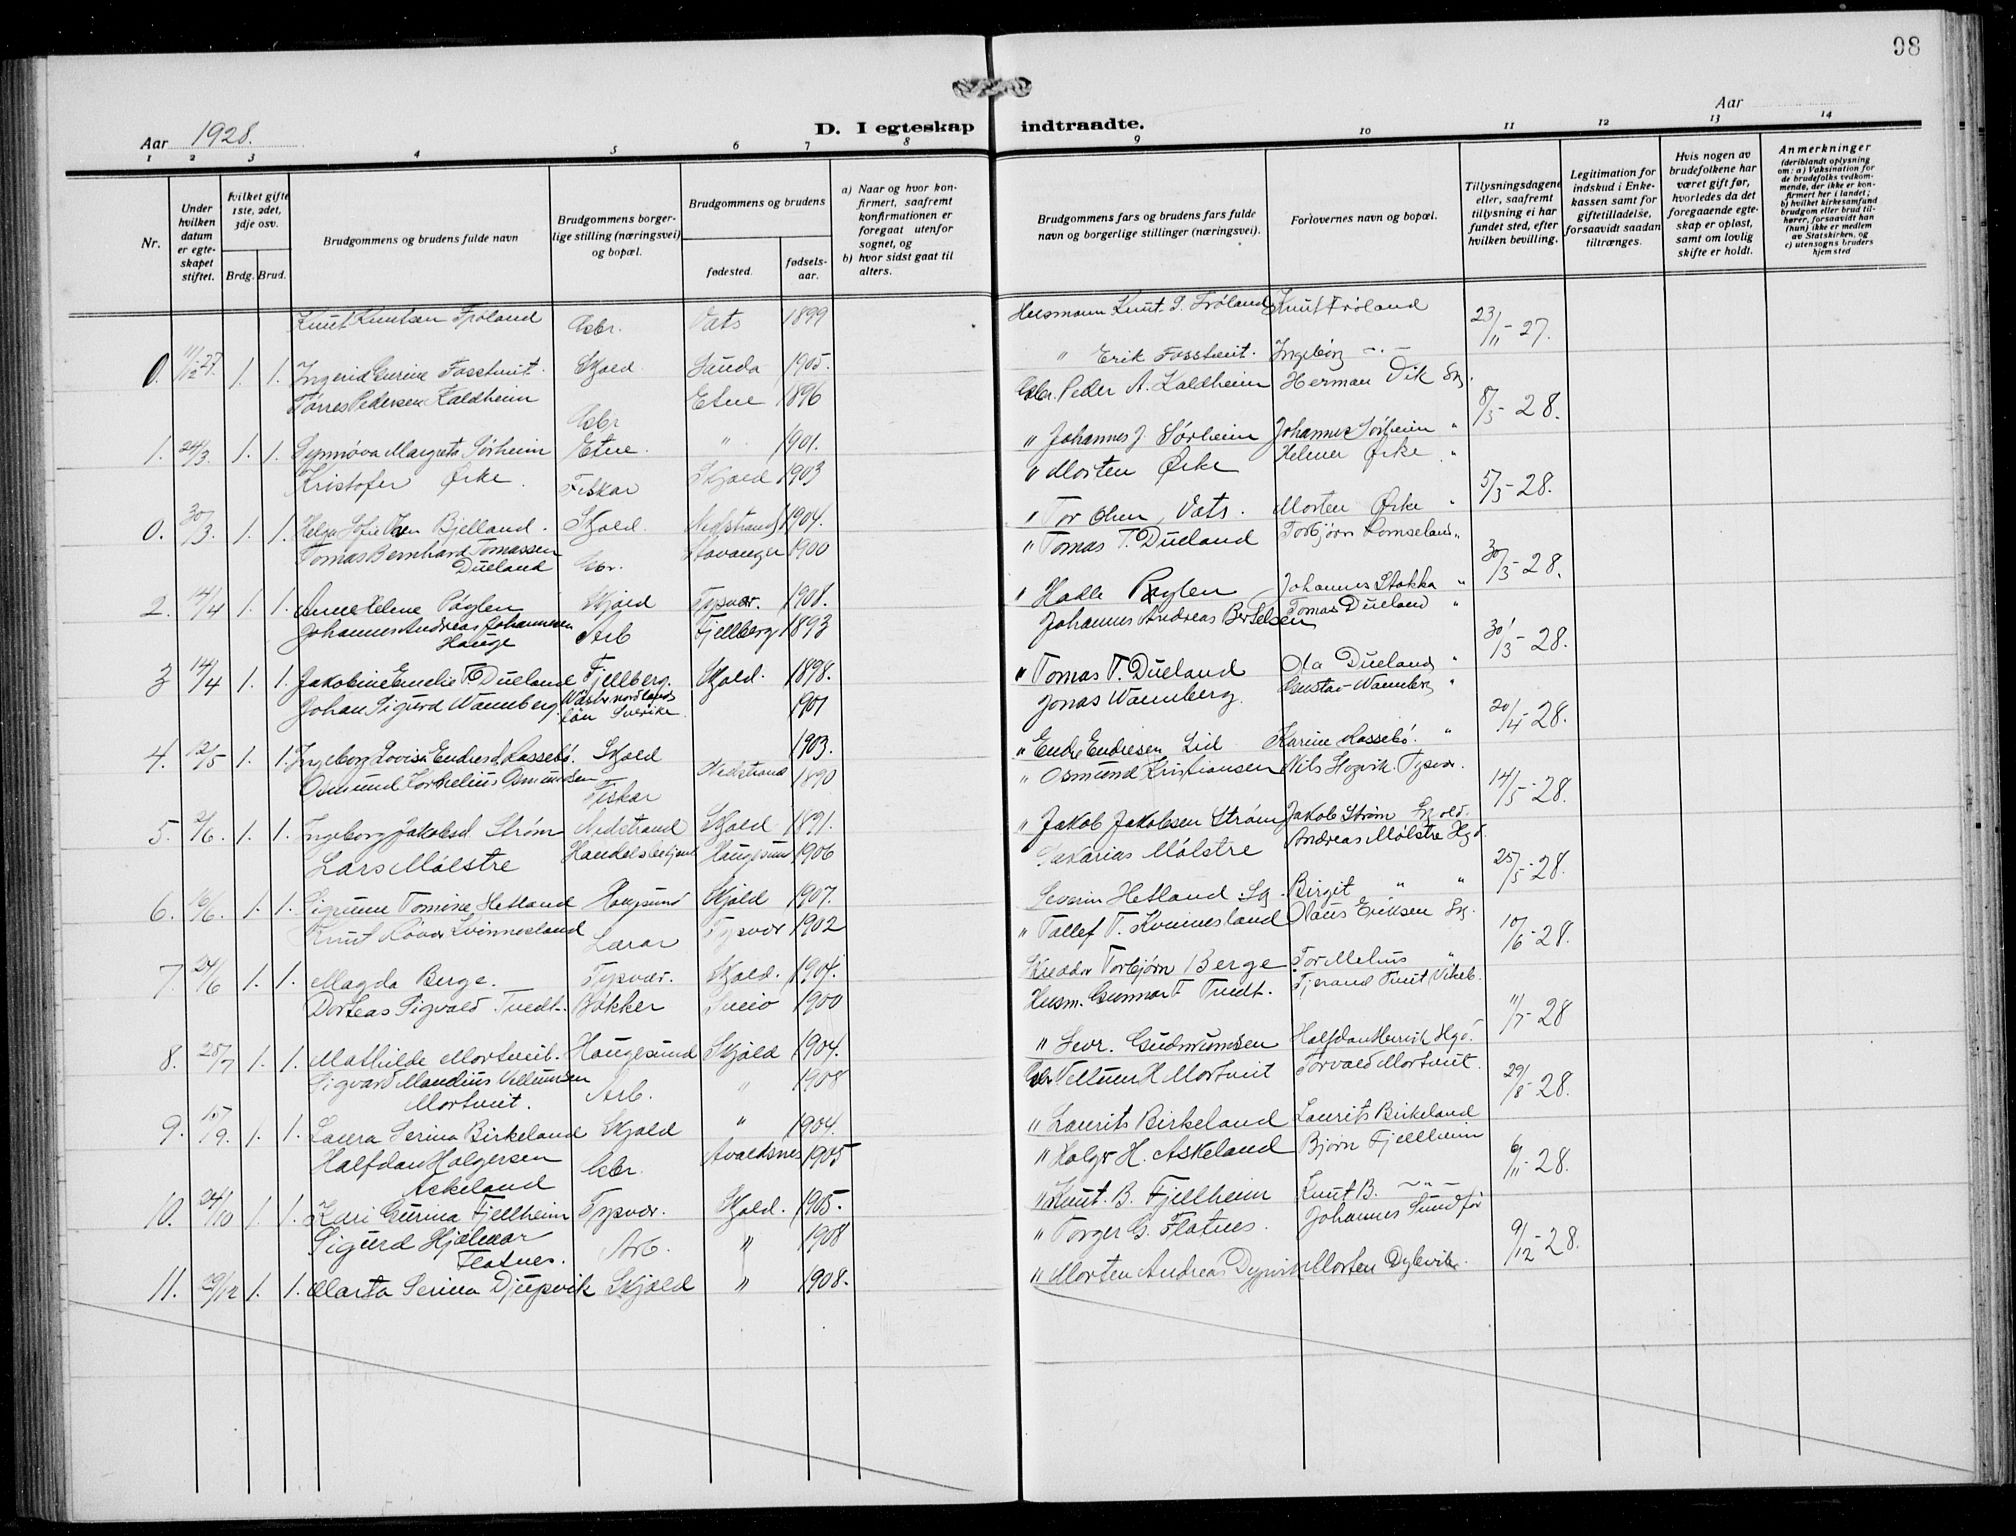 98
Aar 1928.
D. I egteskap indtraadte.
Aar
1 2 3 4 5 6 7 8 9 10 11 12 13 14
Nr.
Under hvilken datum er egteskapet stiftet.
hvilket gifte 1ste, 2det, 3dje osv.
Brdg. Brud.
Brudgommens og brudens fulde navn
Brudgommens borgerlige stilling (næringsvei) og bopæl.
Brudgommens og brudens
fødested.
fødselsaar.
a) Naar og hvor konfirmert, saafremt konfirmationen er foregaat utenfor sognet, og
b) hvor sidst gaat til alters.
Brudgommens fars og brudens fars fulde navn og borgerlige stillinger (næringsvei).
Forlovernes navn og bopæl.
Tillysningsdagene eller, saafremt tillysning ei har fundet sted, efter hvilken bevilling.
Legitimation for indskud i Enkekassen samt for giftetilladelse, forsaavidt saadan tiltrænges.
Hvis nogen av brudefolkene har været gift før, hvorledes da det foregaaende egteskap er opløst, samt om lovlig skifte er holdt.
Anmerkninger (deriblandt oplysning om: a) Vaksination for de brudefolks vedkommende, der ikke er konfirmert her i landet; b) hvilket kirkesamfund brudgom eller brud tilhører, forsaavidt han (hun) ikke er medlem av Statskirken, og c) utensogns bruders hjemsted
Knut Knutsen Frøland Gbr. Vats 1899 Husmann Knut P. Frøland Knut Frøland 23/11-27.
0. 11/12 27. 1. 1. Ingerid Gurine Fosstveit. Skjold. Sauda 1905. " Erik Fosstveit. Ingeborg -"-
Tørres Pedersen Kaldheim Gbr Etne 1896 Gbr. Peder A. Kaldheim Herman Vik Sg. 8/3-28.
1. 24/3. 1. 1. Synnøva Margreta Sørheim Etne. " 1901. " Johannes J. Sørheim Johannes Sørheim "
Kristofer Ørke. Fiskar Skjold 1903 " Morten Ørke Helmer Ørke. " 5/3-28.
0. 30/3. 1. 1. Helga Sofie Bjelland. Skjold. Nedstrand 1904. " Tor Olsen Vats. Morten Ørke "
Tomas Bernhard Tomassen Dueland Gbr. Stavanger 1900 " Tomas T. Dueland Torbjørn Romseland " 30/3-28.
2. 14/4 1. 1. Anne Helene Røylen Skjold Tysvær. 1908. " Halle Røylen Johannes Stakka "
Johannes Andreas Johannesen Hauge Arb Fjellberg 1893 Johannes Andreas Bertelsen Tomas Dueland " 30/3-28.
3 14/4 1. 1. Jakobine Emelie T. Dueland Fjellberg. Skjold. 1898. " Tomas T. Dueland Ola Dueland "
Johan Sigurd Wannberg Wästernorrlands län Sverike. 1901 Jonas Wannberg. Gustav Wannberg " 20/4-28.
4. 12/5 1. 1. Ingeborg Lovisa Endresd. Lassebø. Skjold 1903. " Endre Endresen Lid Karine Lassebø. "
Osmund Kornelius Osmundsen Fiskar Nedstrand 1890 " Osmund Kristiansen Nils Hogvik. Tysvær. 14/5-28.
5. 2/6. 1. 1. Ingeborg Jakobsd. Strøm Nedstrand Skjold 1891. " Jakob Jakobsen Strøm Jakob Strøm Skjold.
Lars Mølstre Handelsbetjent Haugesund 1906 Sakarias Mølstre Andreas Mølstre Hgd. 25/5-28.
6. 16/6. 1. 1. Sigrunn Tomine Hetland Haugesund Skjold 1907. Severin Hetland. Sg. Birgit " "
Knut Kvinnesland Lærar Tysvær 1902 " Tallef T. Kvinnesland Olaus Eriksen Sg. 10/6-28.
7. 24/6 1. 1. Magda Berge. Tysvær. Skjold. 1904. Skreddar Torbjørn Berge Tor Melhus "
Dorteas Sigvald Tvedt. Bøkker Sveio 1900 Husm. Gunnar T. Tvedt. Tjerand Tveit Vikeb. 11/7-28
8. 28/7 1. 1. Mathilde Mortveit. Haugesund Skjold 1904. " Sevr. Gudmundsen Halfdan Henrik Hgd.
Sigvard Mandius Vellumsen Mortveit. Arb. " 1908 Gbr Vellum H Mortveit Torvald Mortveit. 29/8-28.
9. 15/9. 1. 1. Laura Serina Birkeland Skjold " 1904. " Laurits Birkeland Laurits Birkeland
Halfdan Holgersen Askeland Gbr. Avaldsnes 1905 " Holger H. Askeland Bjørn Fjellheim 6/11-28.
10. 24/10 1. 1. Kari Gurina Fjellheim Tysvær. Skjold. 1905. " Knut. B. Fjellheim Knut B. -"-
Sigurd Hjalmar Flatnes. Arb. " 1908 " Torger G. Flatnes. Johannes Sundfør 9/12-28.
11. 29/12 1. 1. Marta Serina Djupvik Skjold " 1908. " Morten Andreas Dypvik Morten Dybvik.